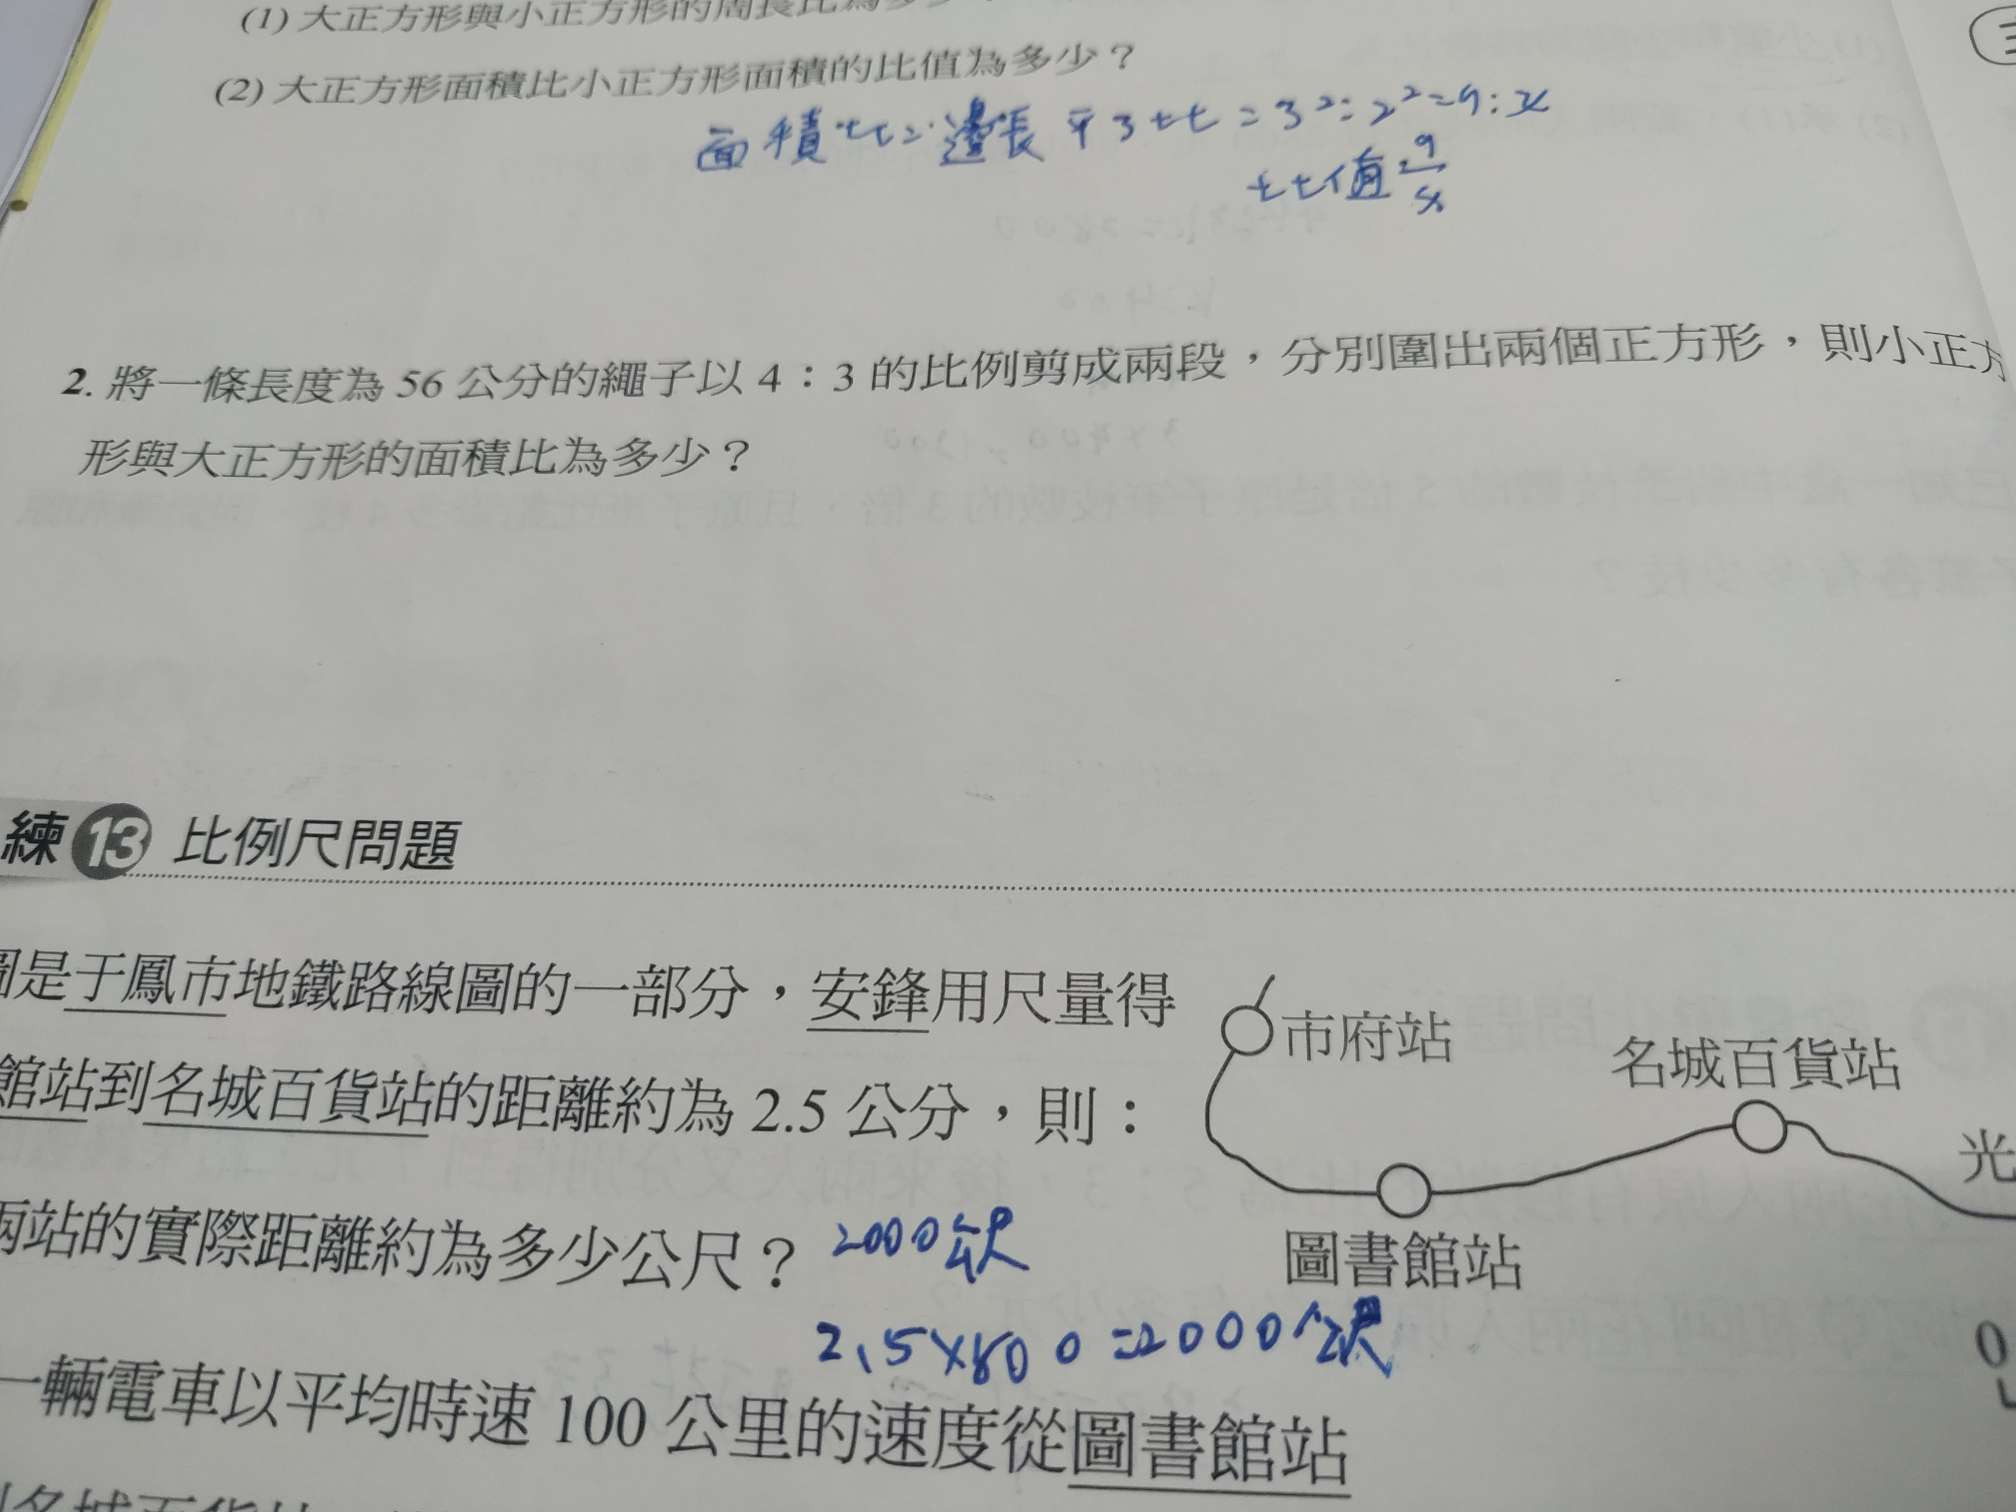 (1) 大正方形與小正方形的周長比為多少
(2) 大正方形面積比小正方形面積的比值為多少？
面積比=邊長平方比=3²:2²=9:4
比值=9/4
2. 將一條長度為 56 公分的繩子以 4：3 的比例剪成兩段，分別圍出兩個正方形，則小正方
形與大正方形的面積比為多少？
練 13 比例尺問題
圖是于鳳市地鐵路線圖的一部分，安鋒用尺量得
館站到名城百貨站的距離約為 2.5 公分，則：
兩站的實際距離約為多少公尺？ 2000公尺
2.5×800=2000公尺
一輛電車以平均時速 100 公里的速度從圖書館站
市府站
名城百貨站
光
圖書館站
0